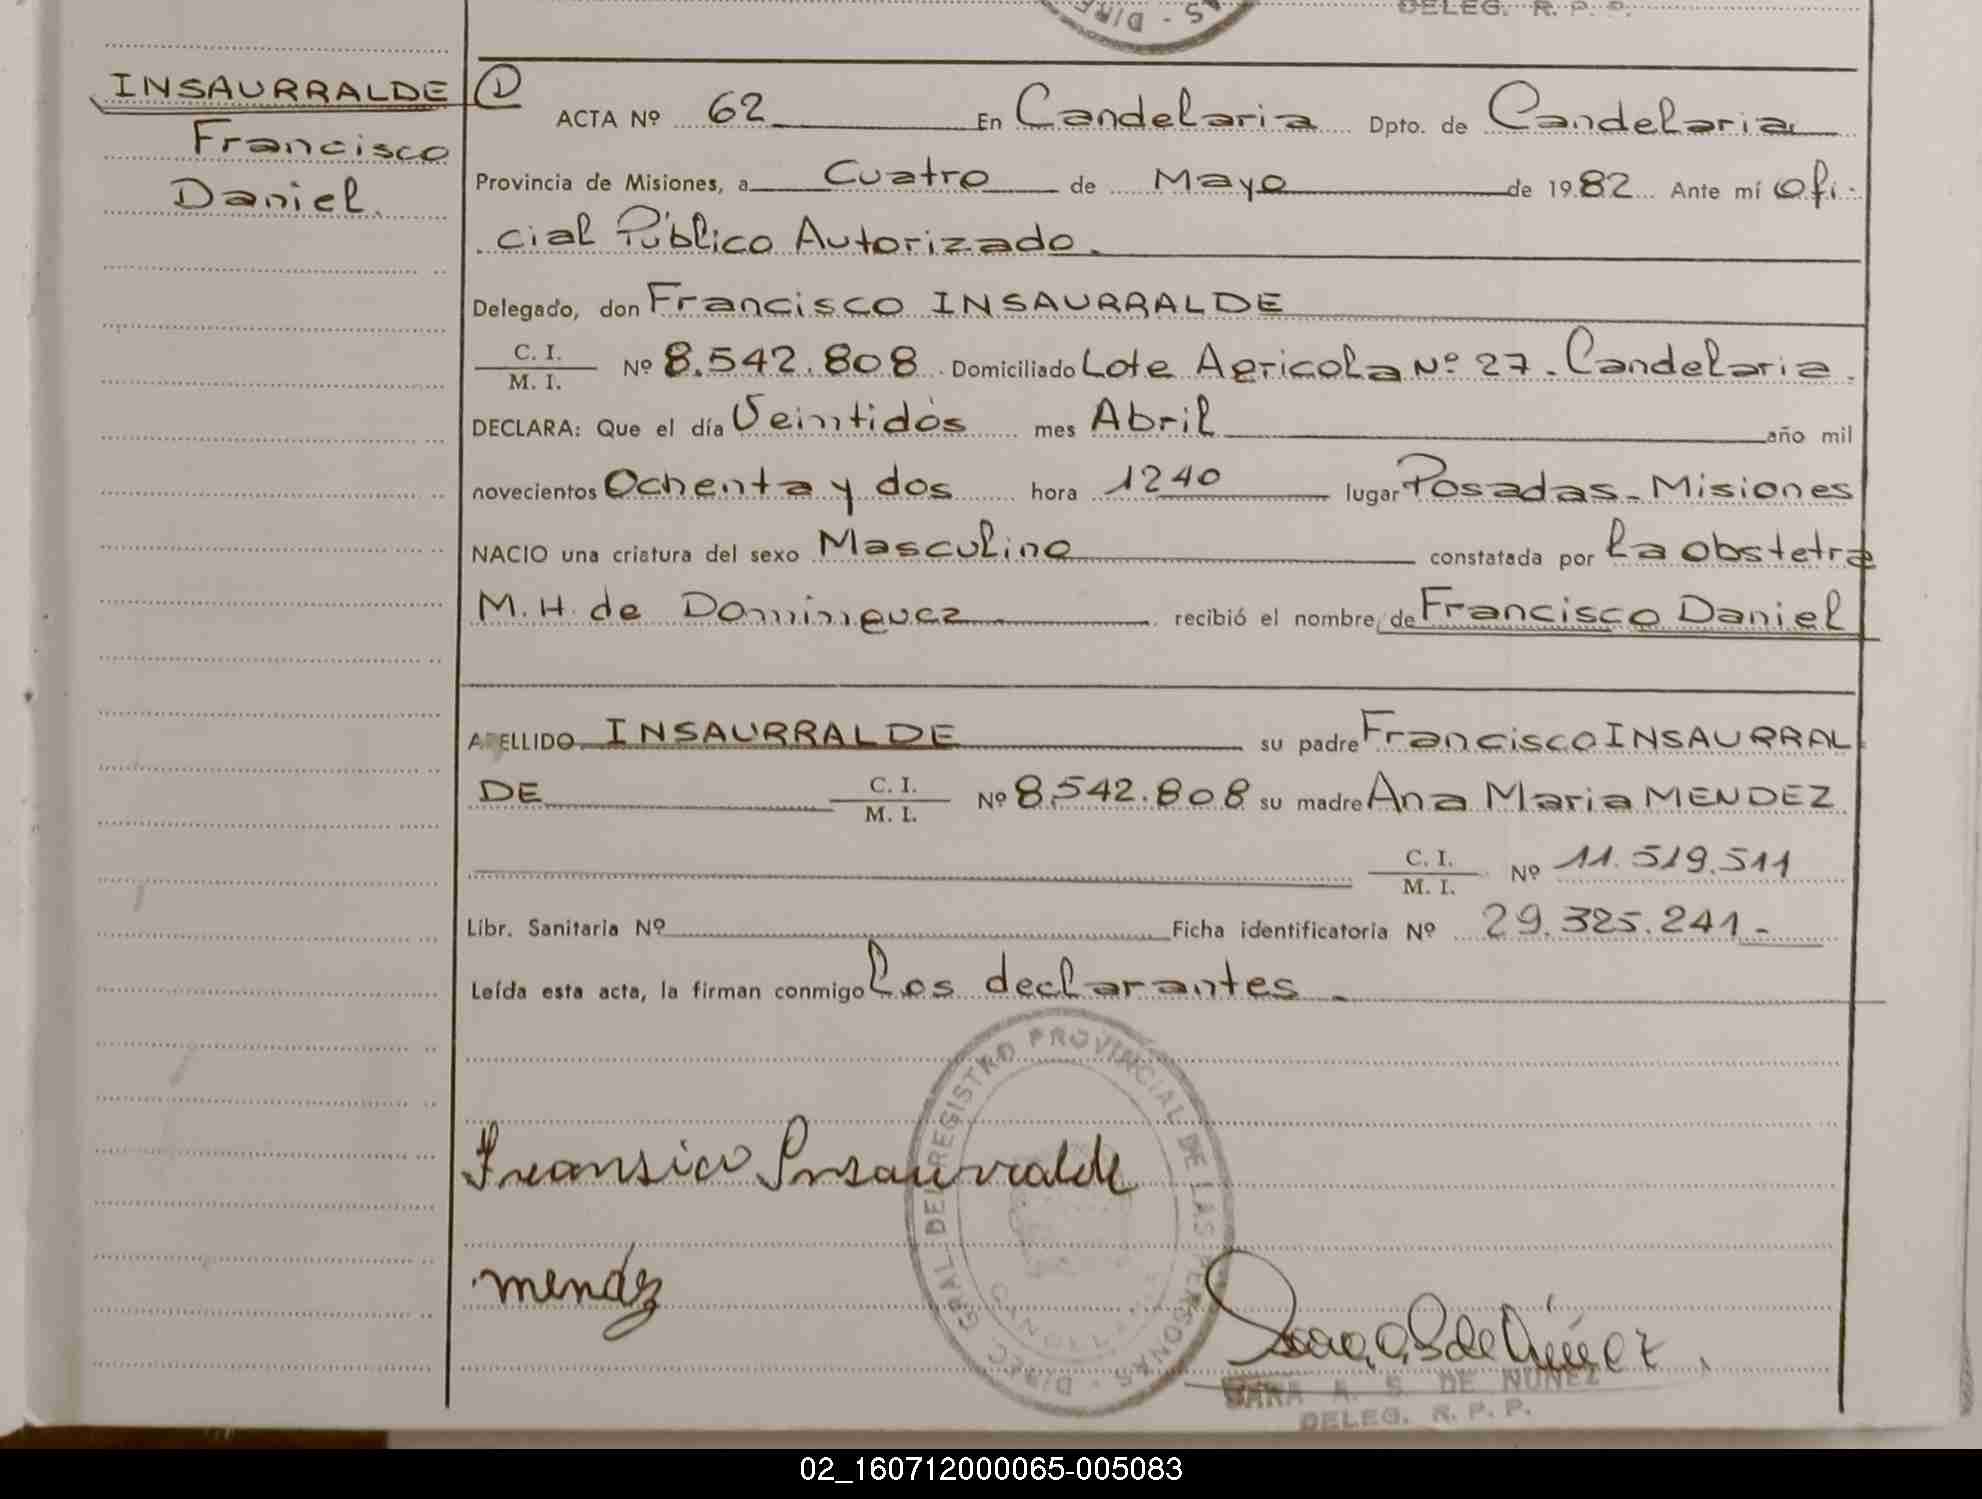 DIRE - AS
DELEG. R. P. P.
INSAURRALDE
Francisco
Daniel.
D
ACTA Nº 62 En Candelaria Dpto. de Candelaria
Provincia de Misiones, a Cuatro de Mayo de 1982 Ante mí Ofi-
cial Público Autorizado.
Delegado, don Francisco INSAURRALDE
C. I.
M. I. Nº 8.542.808 Domiciliado Lote Agricola Nº 27. Candelaria.
DECLARA: Que el día Veintidós mes Abril año mil
novecientos Ochenta y dos hora 1240 lugar Posadas - Misiones
NACIO una criatura del sexo Masculino constatada por la obstetra
M. H. de Dominguez recibió el nombre de Francisco Daniel
APELLIDO INSAURRALDE su padre Francisco INSAURRAL
DE C. I.
M. I. Nº 8.542.808 su madre Ana Maria MENDEZ
C. I.
M. I. Nº 11.519.511
Libr. Sanitaria Nº Ficha identificatoria Nº 29.325.241-
Leída esta acta, la firman conmigo los declarantes.
DIREC. GRAL. DEL REGISTRO PROVINCIAL DE LAS PERSONAS
Fransico Insaurralde
mendz
Sara A. S de Núñez
SARA A. S. DE NUÑEZ
DELEG. R. P. P.
02_160712000065-005083